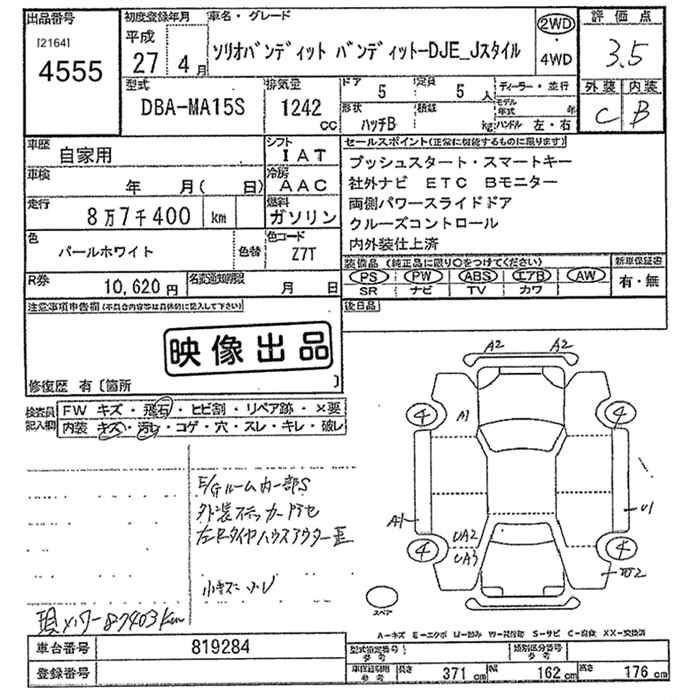 出品番号 初度登録年月 車名・グレード 2WD 評価点
[2164] 平成
4555 27 4月 ソリオバンディット バンディットーDJE_Jスタイル ・ 4WD 3.5
外装 内装
C B
型式 排気量 ドア 5 定員 5人 ディーラー・並行
DBA-MA15S 1242cc 形状 ハッチB 積載 kg モデル年式 年 ハンドル 左・右
車歴 自家用 シフト IAT
車検 年 月( 日) 冷房 AAC
走行 8万7千400 km 燃料 ガソリン
色 パールホワイト 色替 色コード Z7T
R券 10,620円 名変通知期限 月 日
セールスポイント(正常に機能するものに限ります)
プッシュスタート・スマートキー
社外ナビ ETC Bモニター
両側パワースライドドア
クルーズコントロール
内外装仕上済
装備品(純正品に限り○をつけてください) 新車保証書
PS PW ABS エアB AW 有・無
SR ナビ TV カワ
注意事項申告欄(不具合内容等は具体的に記入して下さい) 後日品
映像出品
修復歴 有〔箇所 〕
検査員記入欄 FW キズ・飛石・ヒビ割・リペア跡・×要
内装 キズ・汚レ・コゲ・穴・スレ・キレ・破レ
E/Gルーム内一部S
外装ステッカー
左Rタイヤハウスアウター
小キズ
現メーター87403km
A2 A2
4 A1 4
A1 U1
UA2
4 UA3 4
W2
スペア
A-キズ E-エクボ U-凹み W-補修跡 S-サビ C-腐食 XX-交換済
車台番号 819284 型式指定番号 参考 類別区分番号 参考
登録番号 長さ 371cm 幅 162cm 高さ 176cm